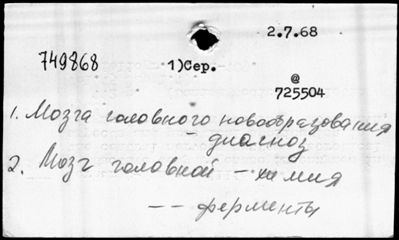 2.7.68
749868
1)Сер.
@
725504
1. Мозга головного новообразования
- диагноз
2. Мозг головной - химия
- - ферменты